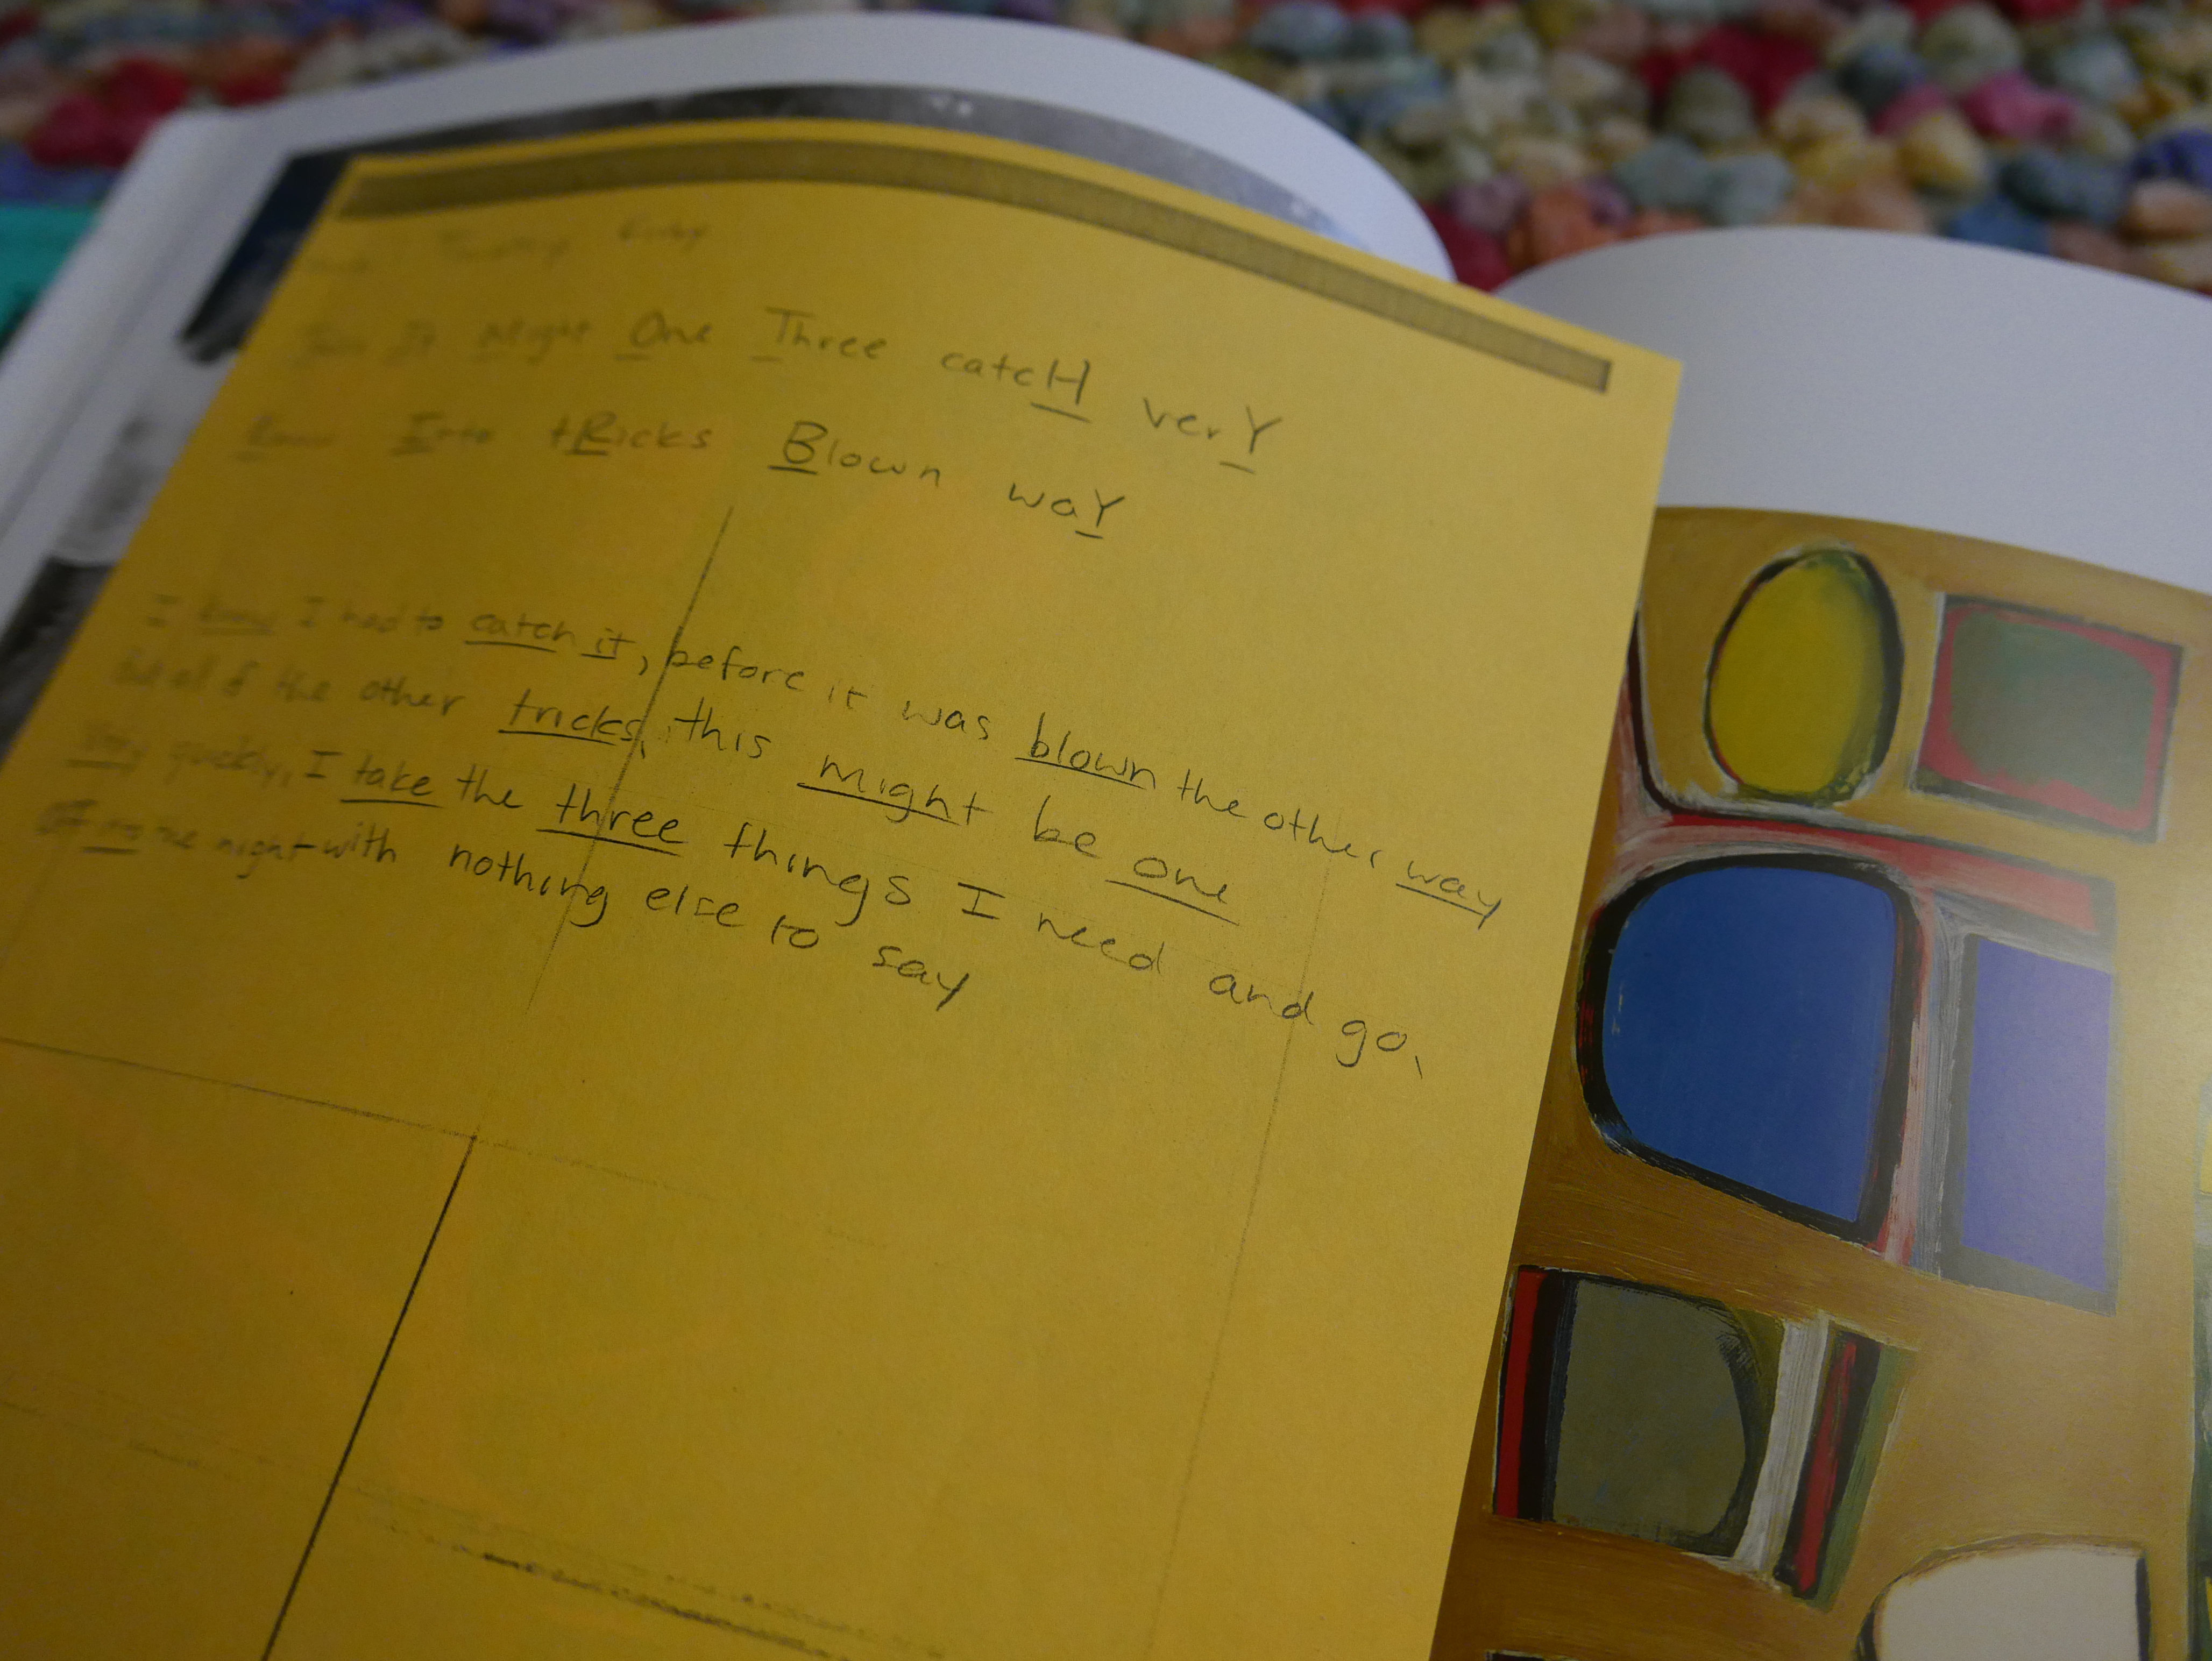 Timothy Kirby
It Might One Three catcH verY
Know Into tRicks Blown waY
I know I had to catch it, before it was blown the other way
but all of the other tricks, this might be one
Very quickly, I take the three things I need and go,
the night with nothing else to say